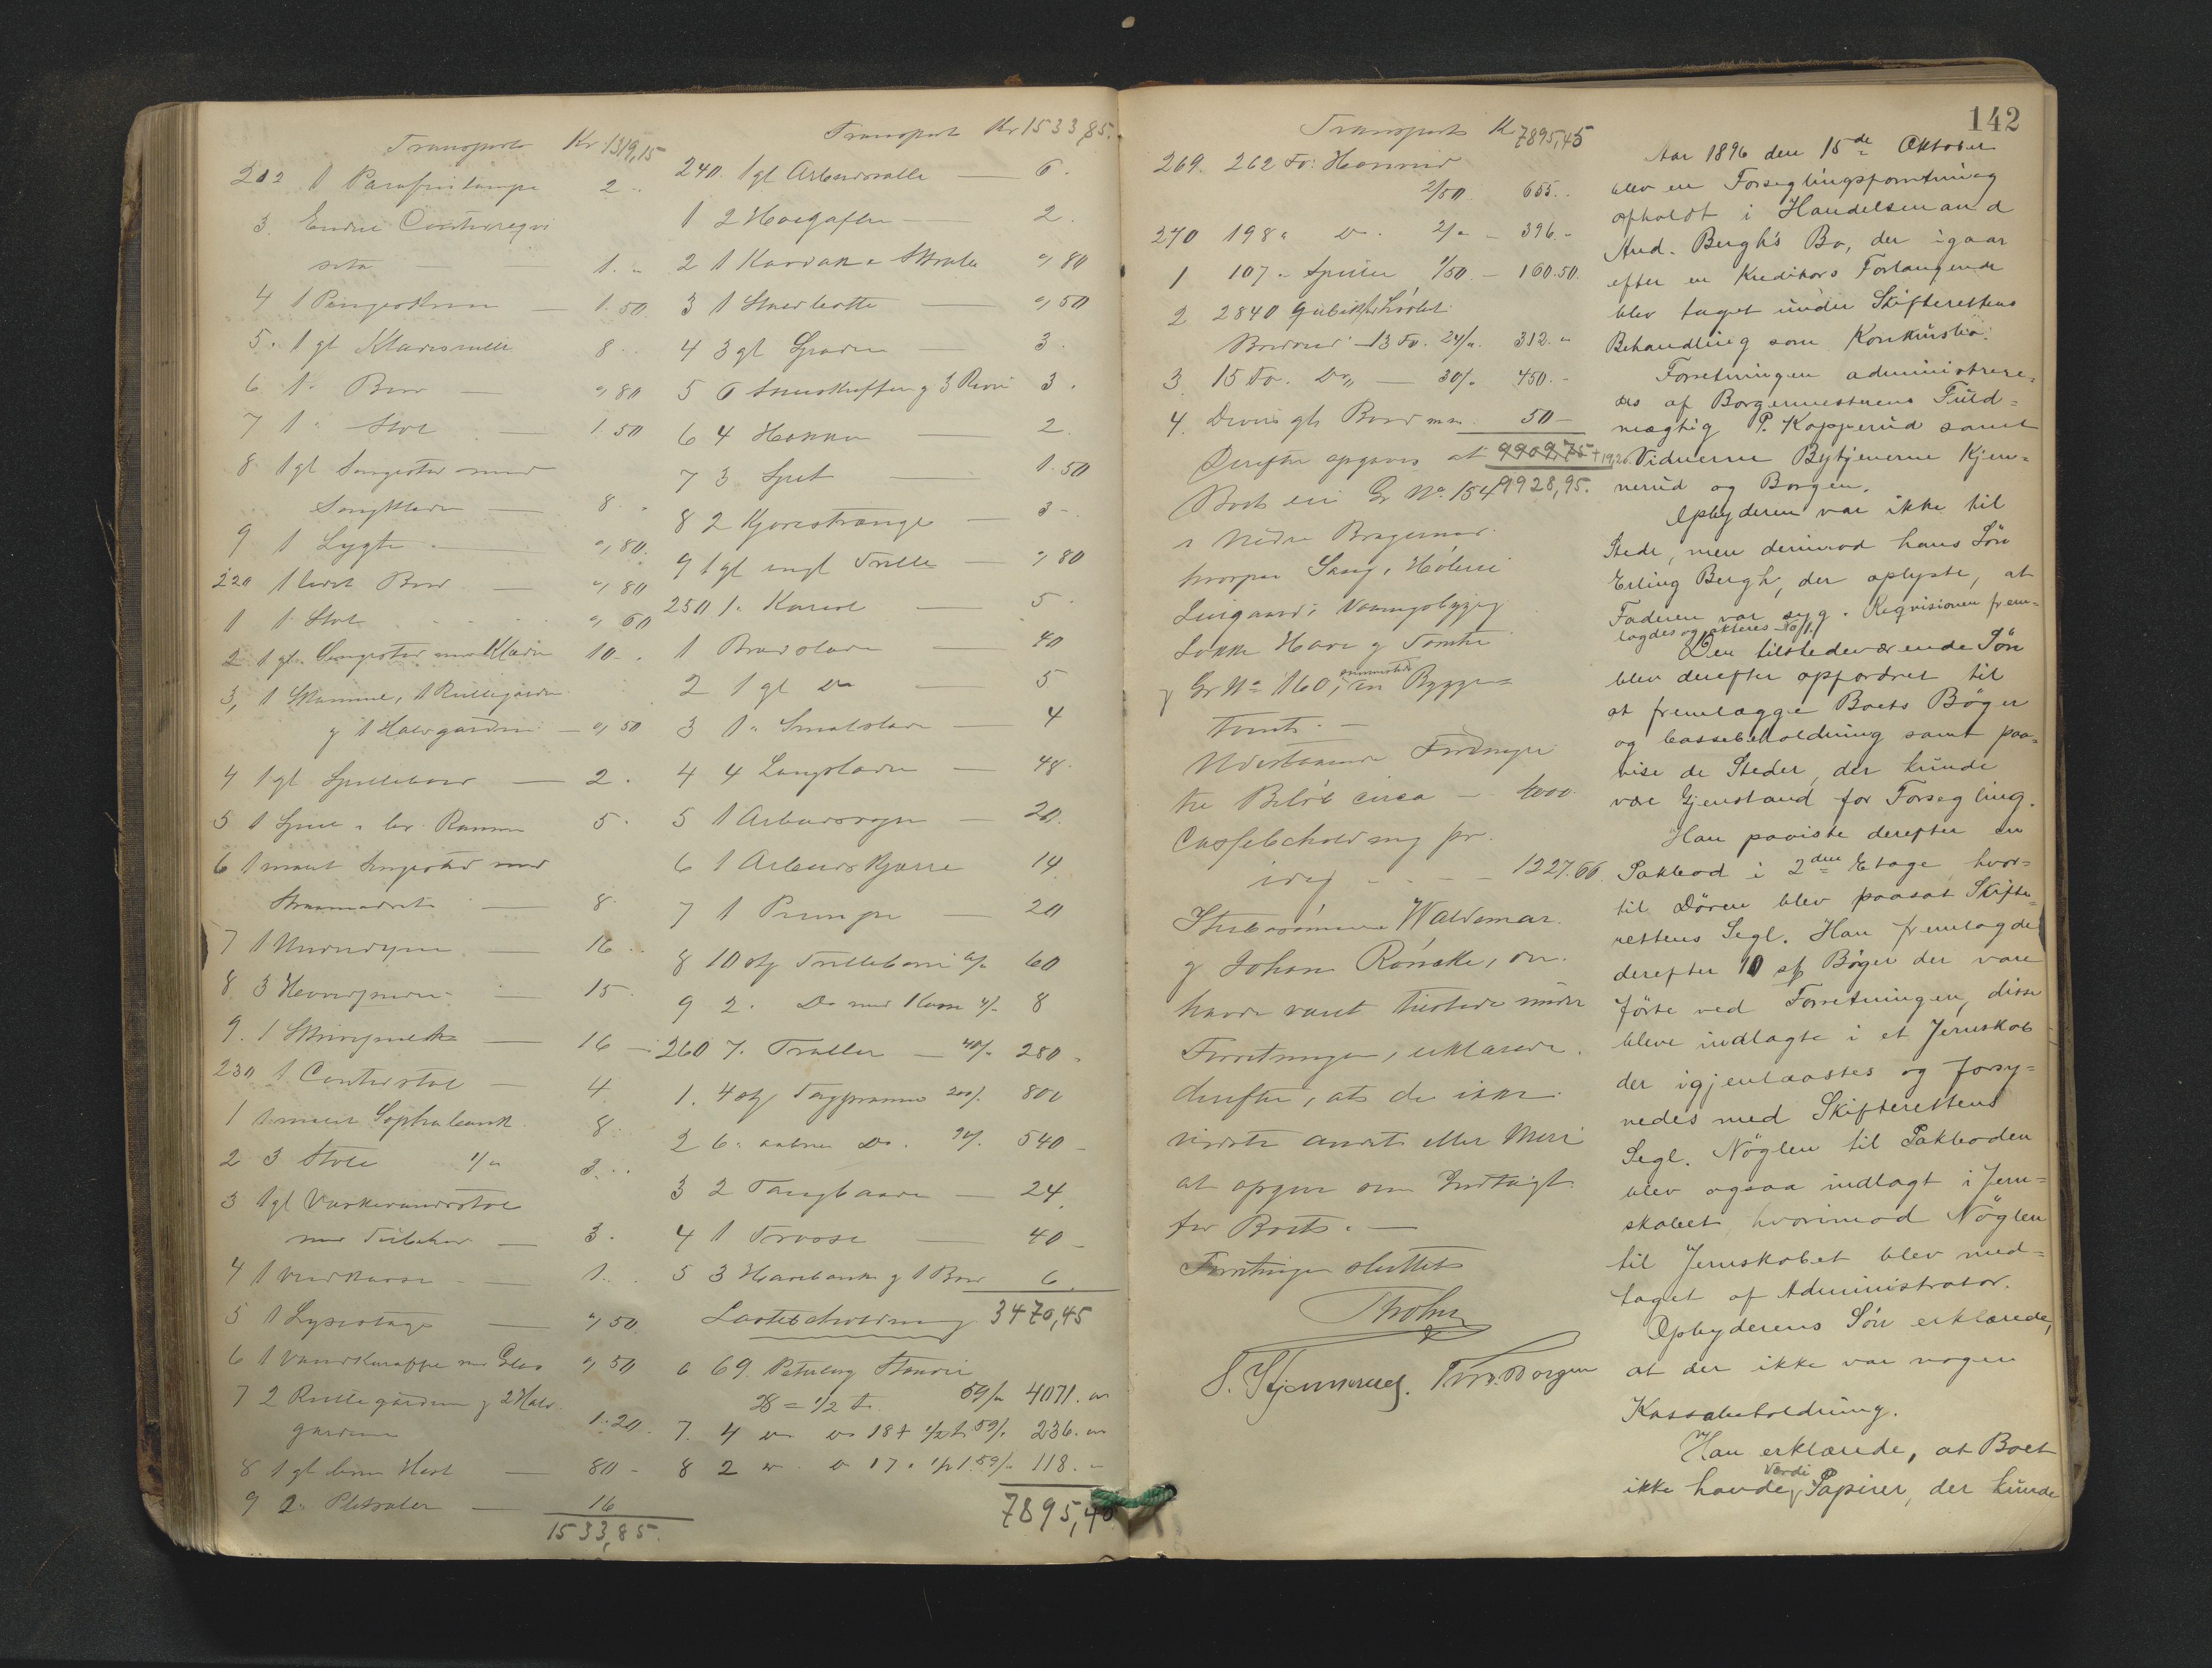 Transport Kr 1319,15
212 1 Parafinlampe 2 -
3. Endel Contorreqvi
sita — 1. "
4 1 Pengeskrin — 1.50.
5. 1 gl Klædesrulle 8 -
6. 1 " Bord — ", 80
7 1 " Stol — 1.50
8 1 gl Sengested med
Sengklæder — 8 .
9 1 Lygte — ", 80.
220 1 lidet Bord — ", 80
1 1 Stol ", 60
2 1 gl. Sengested med Klæder 10 - .
3, 1 Skammel, 1 Rullegardin
g 1 Halvgardin — ", 50
4 1 gl Spillebord — 2 .
5 1 Speil i br. Ramme 5 .
6 1 malet Sengested med
Straamadrats — 8 .
7 1 Underdyne — 16 ..
8 3 Hovedpuder — 15
9. 1 Skrivepult — 16 —
230 1 Contorstol — 4.
1 1 malet Sophabænk 8.
2 3 Stole 1/" 3. ..
3 1 gl Vaskevandsstol
med Tilbehør — 3 .
4 1 Vedkasse — 1.
5 1 Lysestage — ", 50.
6 1 Vandkaraffe med Glas ", 50
7 2 Rullegardiner g 2 Halv
gardiner 1.20.
8 1 gl brun Hest — 80 -
9 2. Pletsæler — 16
1533,85.
Transport Kr 1533,85.
240. 1 gl Arbeidssæle — 6 .
1 2 Høegafler — 2.
2 1 Kardask & Skrabe ", 80
3 1 Staaebøtte — ", 50
4 3 gl Grader — 3.
5 6 Sneskuffer g 3 River 3 .
6 4 Hakker — 2.
7 3 Spet — 1.50
8 2 Kjørestrenge — 3 - .
9 1 gl engl Trille — ", 80
250 1 " Kariol — 5 .
1 1 Bredslæde — 40
2 1 gl Do — 5
3 1 " Smalslæde — 4
4 4 Langslæder — 48.
5 1 Arbeidsvogn — 20.
6 1 Arbeidskjærre 14.
7 1 Pumpe — 20
8 10 stk Trillebører 6/" 60
9 2 . Do med 1 Kasse 4/- 8
260 7. Traller — 40/" 280 -
1. 4 stk Tagpramme 200/. 800
2 6 " aabne Do . 90/. 540 -
3 2 Tangbaade — 24.
4 1 Trosse — 40 -
5 3 Havebænke g 1 Bord 6
3470,45
Lastebeholdning
6 69. Petersburg Standard
28 = 1/2 t. 59/" 4071. "
7. 4 do do 18 + 1/2 t 59/. 236. "
8 2 do. do 17 " 1/2 t. 59/- 118. "
7895,45
142
Transport Kr 7895,45
269. 262 Tv: Hanved
2/50. 655. -
270 198 " Do . 2/" - 396. -
1 107 " Spiler 1/50. - 160.50.
2 2840 Qubikf. høvlet
Bordved - 13 Tv. 24/". 312. "
3 15 Tv. Do " — 30/" 450. -
4. Divers gl. Bord m m. 50 —
Derefter opgaves at 9909,75 + 19,20
Boets eier Gr No. 154 9928,95.
i Nedre Bragernæs
hvorpaa Sang, Høvleri
Løkke Have g Tomter
g Gr No 160, en Bygge-
tomt. —
Udestaaende Fordringer
til Beløb circa — 4000.
Cassebeholdning pr.
idag — 1227.66.
Stuboerne Waldemar.
g Johan Röncke, der.
havde været tilstede under
Forretningen, erklærede
derefter, at de ikke
vidste andet eller Mere
at opgive om Indtægt
for Boet. —
Forretningen sluttet
Throhn
S. Kjennerud. Thv. Borgen
Aar 1896 den 15de Oktober
blev en Forseglingsforretning
afholdt i Handelsmand
And. Bergh's Bo, der igaar
efter en Kreditors Forlangende
blev taget under Skifterettens
Behandling som Konkursbo.
Forretningen administrere-
des af Borgermesterens Fuld-
mægtig P. Kopperud samt
Vidnerne Bytjenerne Kjen-
nerud og Borgen.
Opbyderen var ikke til
Stede, men derimod hans Søn
Erling Bergh, der oplyste, at
Faderen var syg. Reqvisitionen frem-
lagdes og akteres No 1.
Den tilstedeværende Søn
blev derefter opfordret til
at fremlægge Boets Bøger
og Cassebeholdning samt paa-
vise de Steder, der kunde
være Gjenstand for Forsegling.
Han paaviste derefter en
Pakbod i 2den Etage hvor-
til Døren blev paasat Skifte-
rettens Segl. Han fremlagde
derefter 10 st Bøger der vare
førte ved Forretningen, disse
bleve indlagte i et Jernskab
der igjenlaastes og forsy-
nedes med Skifterettens
Segl. Nøglen til Pakboden
blev ogsaa indlagt i Jern-
skabet hvorimod Nøglen
til Jernskabet blev med-
taget af Administrator.
Opbyderens Søn erklærede,
at der ikke var nogen
Kassabeholdning.
Han erklærede, at Boet
ikke havde Værdi Papirer, der kunde